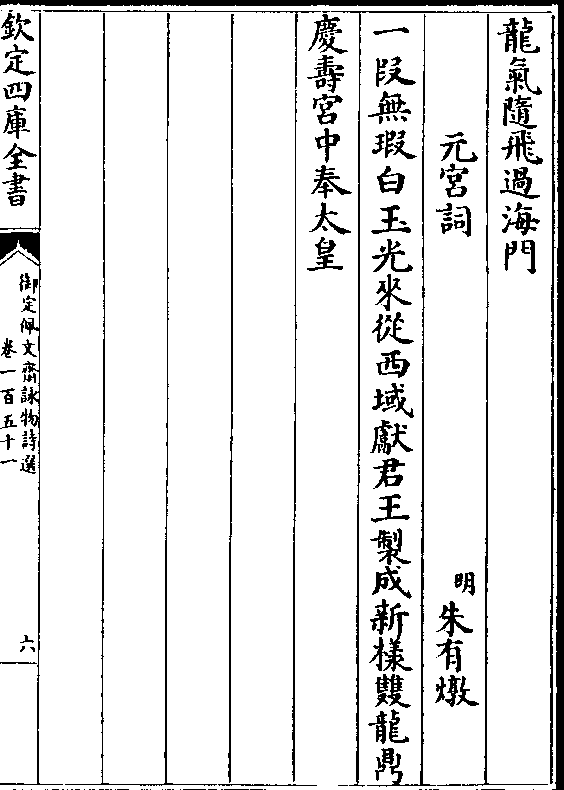 龍氣隨飛過海門
元宮詞
明朱有燉
一段無瑕白玉光來從西域獻君王製成新様雙龍鼎
慶壽宮中奉太皇
欽定四庫全書
御定佩文齋詠物詩選
卷一百五十一
六